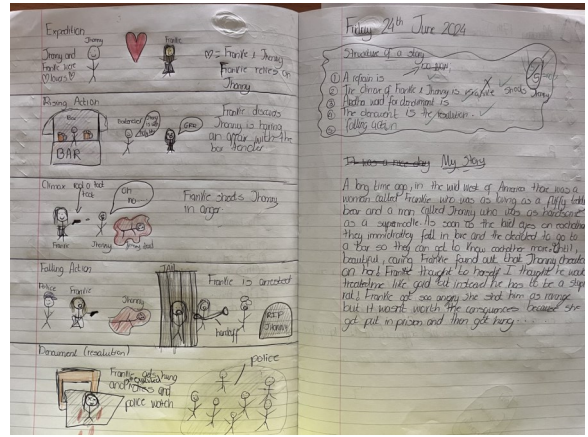 Expedition
Jhonny
Frankie
Jhonny and
Frankie were
lovers
= Frankie & Jhonny
Frankie relies on
Jhonny
Rising Action
Bar
BAR
Bartender
GRR
Frankie discovers
Jhonny is having
an affair with the
bar tender
Climax
root a toot
toot
oh
no
Frankie
Jhonny
Frankie shoots Jhonny
in anger
Falling Action
Police
Frankie
Jhonny
JAIL
handcuff
RIP
JHONNY
Frankie is arrested
Denoument (resolution)
Frankie gets hung
and
and
police watch
police
Friday 24th June 2024
Structure of a story
① A refrain is
② The climax of Frankie & Jhonny is when she shoots Jhonny
③ Another word for denoument is
④ The denoument is the resolution.
⑤ falling action
It was a nice day My Story
A long time ago, in the wild west of America there was a
woman called Frankie who was as loving as a fluffy teddy
bear and a man called Jhonny who was as handsome
as a supermodle. As soon as the laid eyes on eachother
they immidiatley fell in love and the decided to go to
a bar so they can get to know eachother more. Well,
beautiful, caring Frankie found out that Jhonny cheated
on her! Frankie thought to herself I thought he would
treated me like gold but instead he has to be a stupid
rat! Frankie got so angry she shot him as revenge
but it wasn't worth the consquences because she
got put in prison and then got hung...